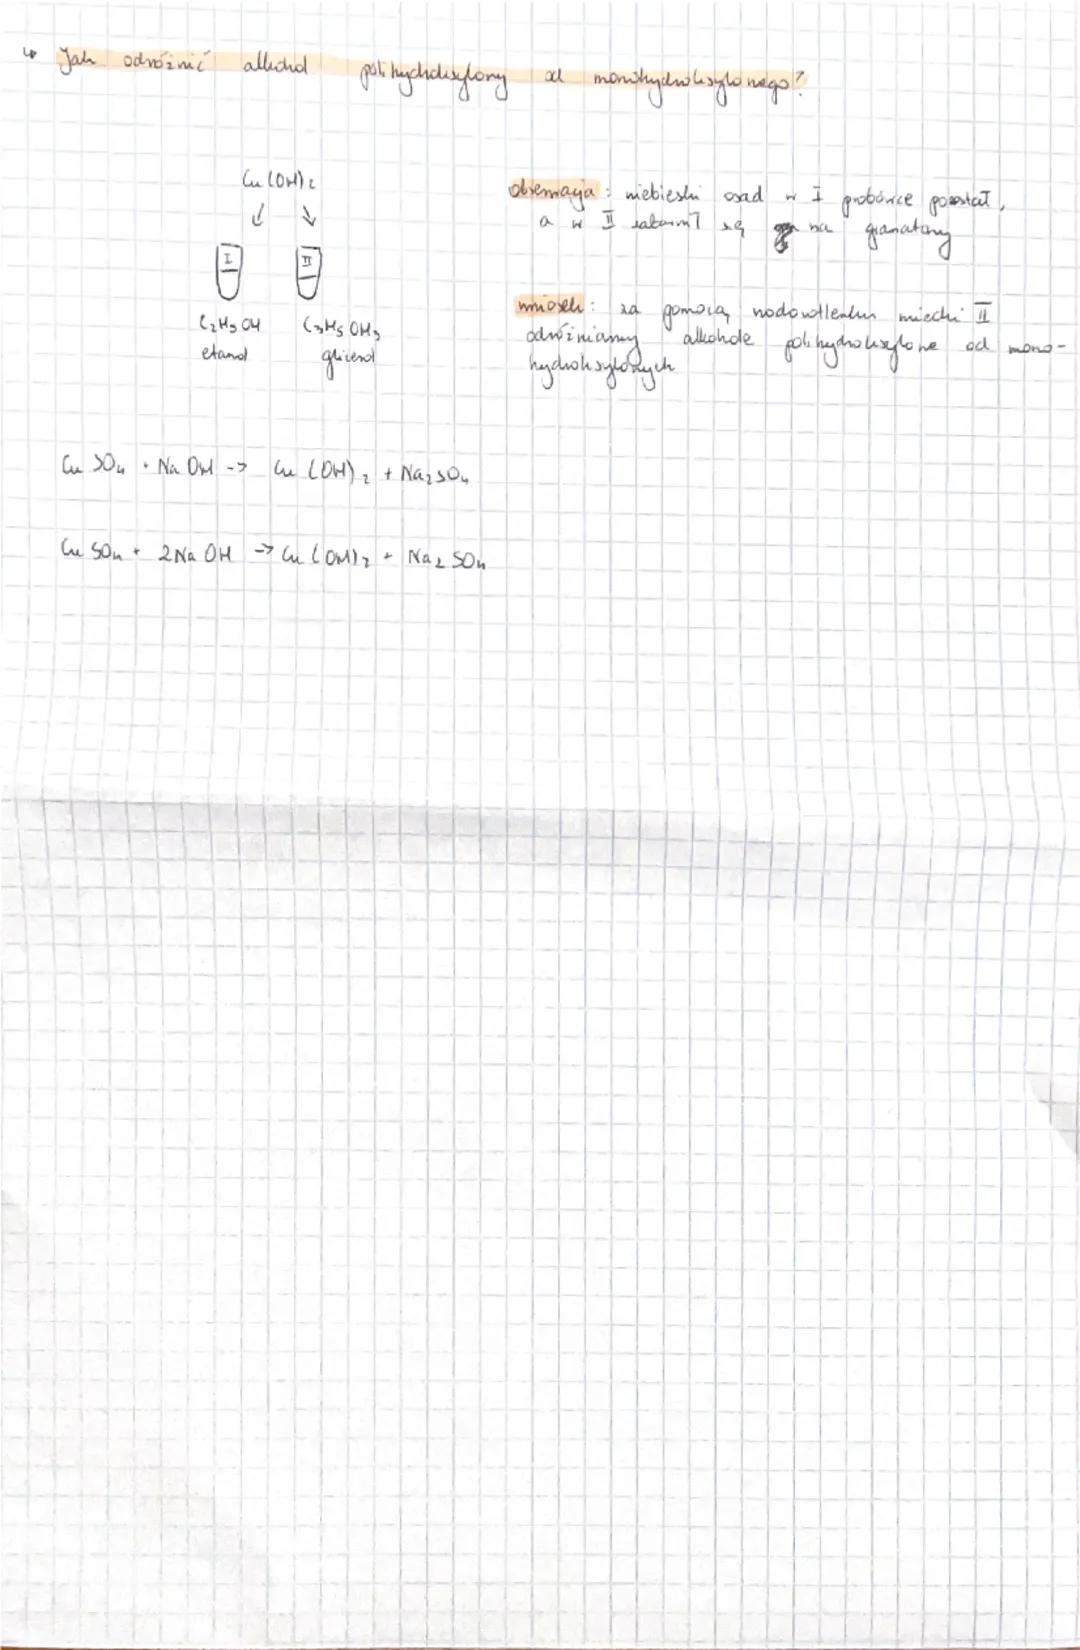 ↳ Jak odróżnić alkohol polihydroksylowy od monohydroksylowego?
Cu(OH)2
I II
C2H5OH C3H5OH3
etanol glicerol
obserwacja: niebieski osad w I probówce pozostał,
a w II zabarwił się na granatowy
wniosek: za pomocą wodorotlenku miedzi II
odróżniamy alkohole polihydroksylowe od mono-
hydroksylowych
CuSO4 + NaOH -> Cu(OH)2 + Na2SO4
CuSO4 + 2NaOH -> Cu(OH)2 + Na2SO4